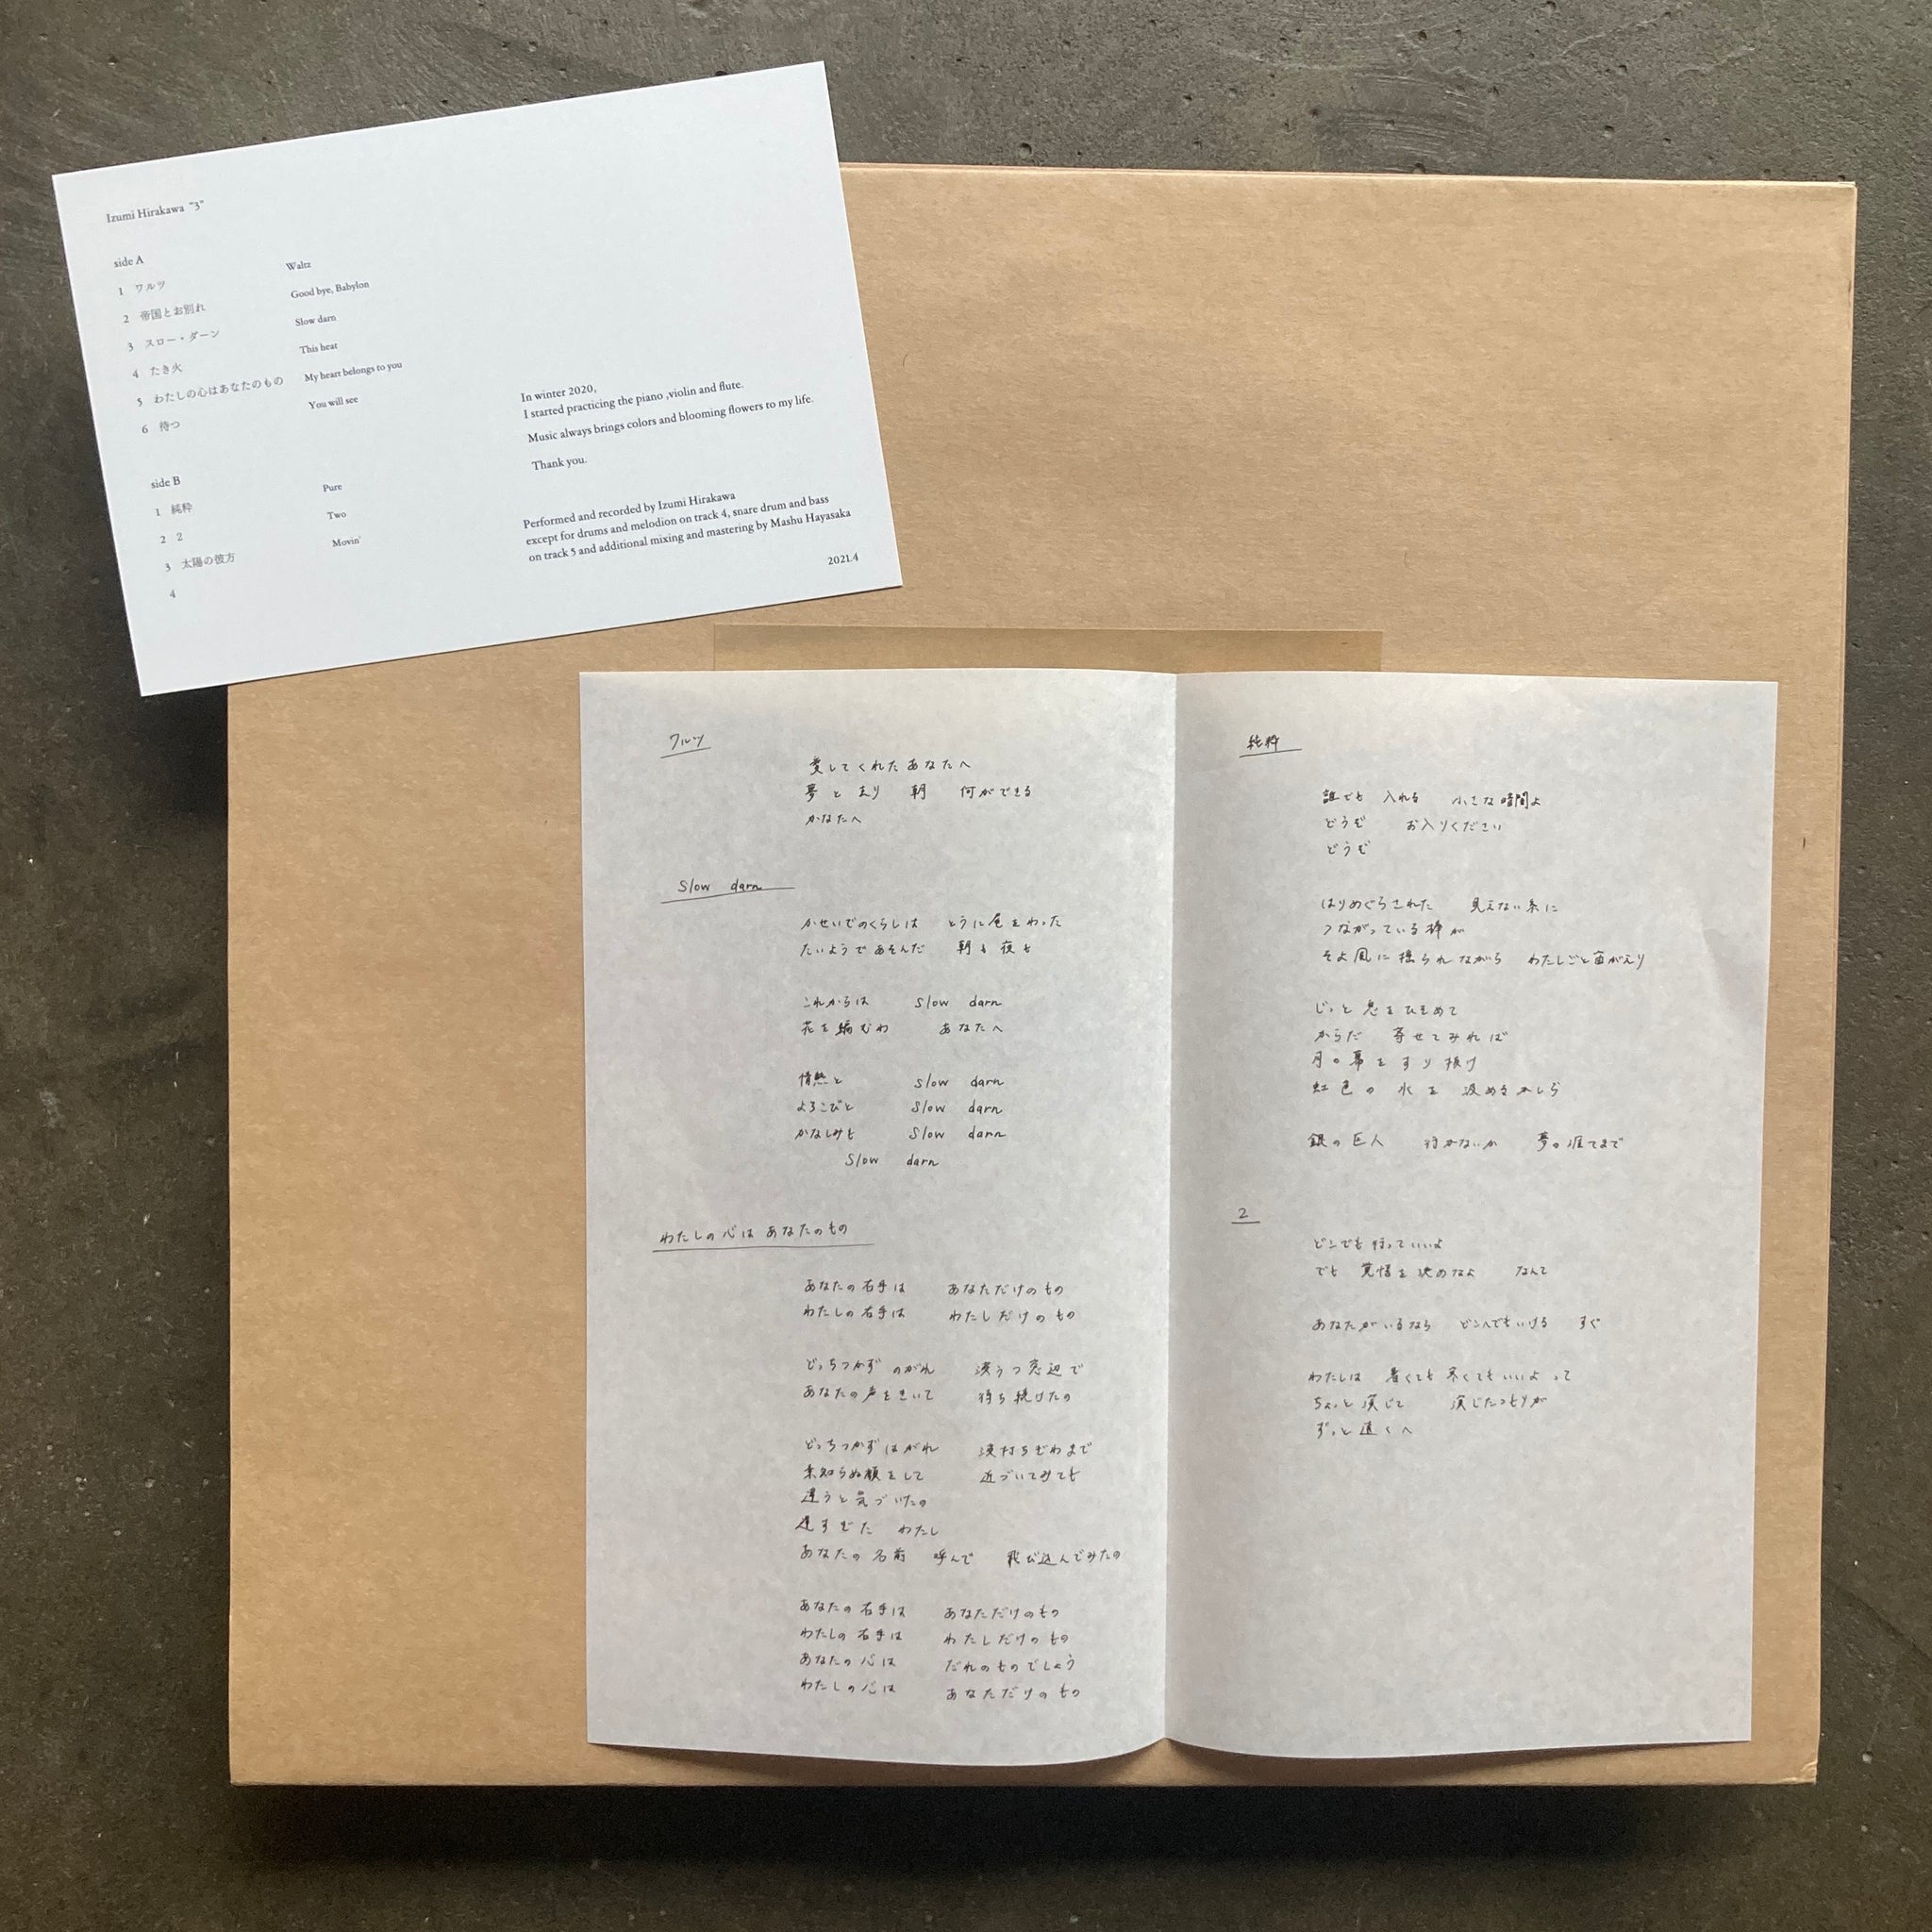 Izumi Hirakawa "3"
side A
1 ワルツ Waltz
2 帝国とお別れ Good bye, Babylon
3 スロー・ダーン Slow darn
4 たき火 This heat
5 わたしの心はあなたのもの My heart belongs to you
6 待つ You will see
side B
1 純粋 Pure
2 2 Two
3 太陽の彼方 Movin'
4
In winter 2020,
I started practicing the piano ,violin and flute.
Music always brings colors and blooming flowers to my life.
Thank you.
Performed and recorded by Izumi Hirakawa
except for drums and melodion on track 4, snare drum and bass
on track 5 and additional mixing and mastering by Mashu Hayasaka
2021.4
ワルツ
愛してくれた あなたへ
夢と 朝 何ができる
かなたへ
Slow darn
かせいでのくらしは とうに色をわった
たいようであそんだ 朝も夜も
これからは slow darn
花を編むわ あなたへ
情熱と slow darn
よろこびと slow darn
かなしみも slow darn
slow darn
わたしの心は あなたのもの
あなたの右手は あなただけのもの
わたしの右手は わたしだけのもの
どっちつかず のがれ 窓辺で
あなたの声をきいて 待ち続けたの
どっちつかず はがれ
見知らぬ顔をして 近づいてみても
違うと気づいたの
わたし
あなたの名前 呼んで 飛び込んでみたの
あなたの右手は あなただけのもの
わたしの右手は わたしだけのもの
あなたの心は だれのものでしょう
わたしの心は あなただけのもの
純粋
誰でも 入れる 小さな時間よ
どうぞ お入りください
どうぞ
はりめぐらされた 見えない糸に
つながっている
そよ風に揺られながら わたしごと宙がえり
じっと 息をひそめて
からだ 寄せてみれば
月の幕を すり抜け
虹色の 水を 汲めるかしら
銀の巨人 行かないか 夢の涯てまで
2
どこでも行っていいよ
でも 覚悟を決めなよ なんて
あなたがいるなら どこへでもいける すぐ
わたしは 暑くても寒くてもいいよって
ちょっと演じて 演じたつもりが
ずっと遠くへ